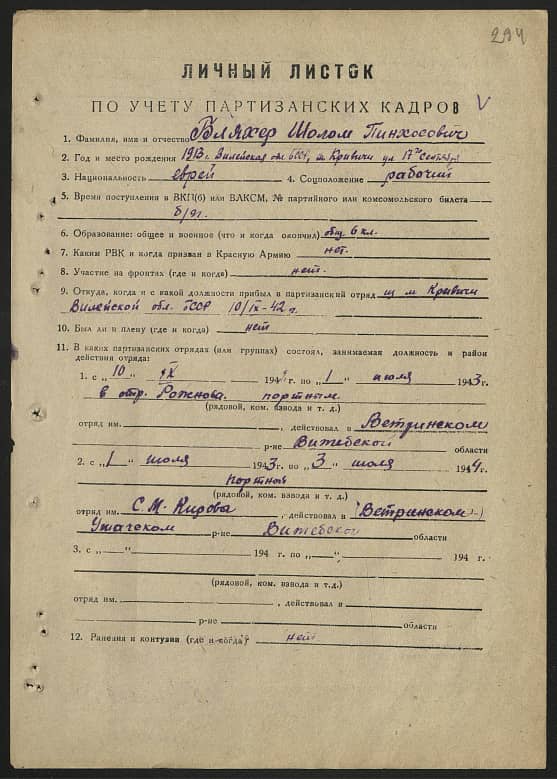 294
ЛИЧНЫЙ ЛИСТОК
ПО УЧЕТУ ПАРТИЗАНСКИХ КАДРОВ V
1. Фамилия, имя и отчество Бляхер Шолом Пинхосович
2. Год и место рождения 1913 г. Вилейская обл БССР, м Кривичи ул 17 сентября
3. Национальность еврей 4. Соцположение рабочий
5. Время поступления в ВКП(б) или ВЛКСМ, № партийного или комсомольского билета
б/п.
6. Образование: общее и военное (что и когда окончил) общ 6 кл.
7. Каким РВК и когда призван в Красную Армию нет.
8. Участие на фронтах (где и когда) нет.
9. Откуда, когда и с какой должности прибыл в партизанский отряд из м Кривичи
Вилейской обл. БССР 10/IX-42 г.
10. Был ли в плену (где и когда) нет
11. В каких партизанских отрядах (или группах) состоял, занимаемая должность и район
действия отряда:
1. с „10" IX 194 г по „1" июля 1943г.
в отр. Рожнова. портным
(рядовой, ком. взвода и т. д.)
отряд им. , действовал в Ветринском
р-не Витебской области
2. с „1" июля 1943г по „3" июля 1944г.
портной
(рядовой, ком. взвода и т. д.)
отряд им. С. М. Кирова , действовал в Ветринском
Ушачском р-не Витебской области
3. с „ " 194 г по „ " 194 г.
(рядовой, ком. взвода и т.д.)
отряд им. , действовал в
р-не области
12. Ранения и контузии (где и когда) нет